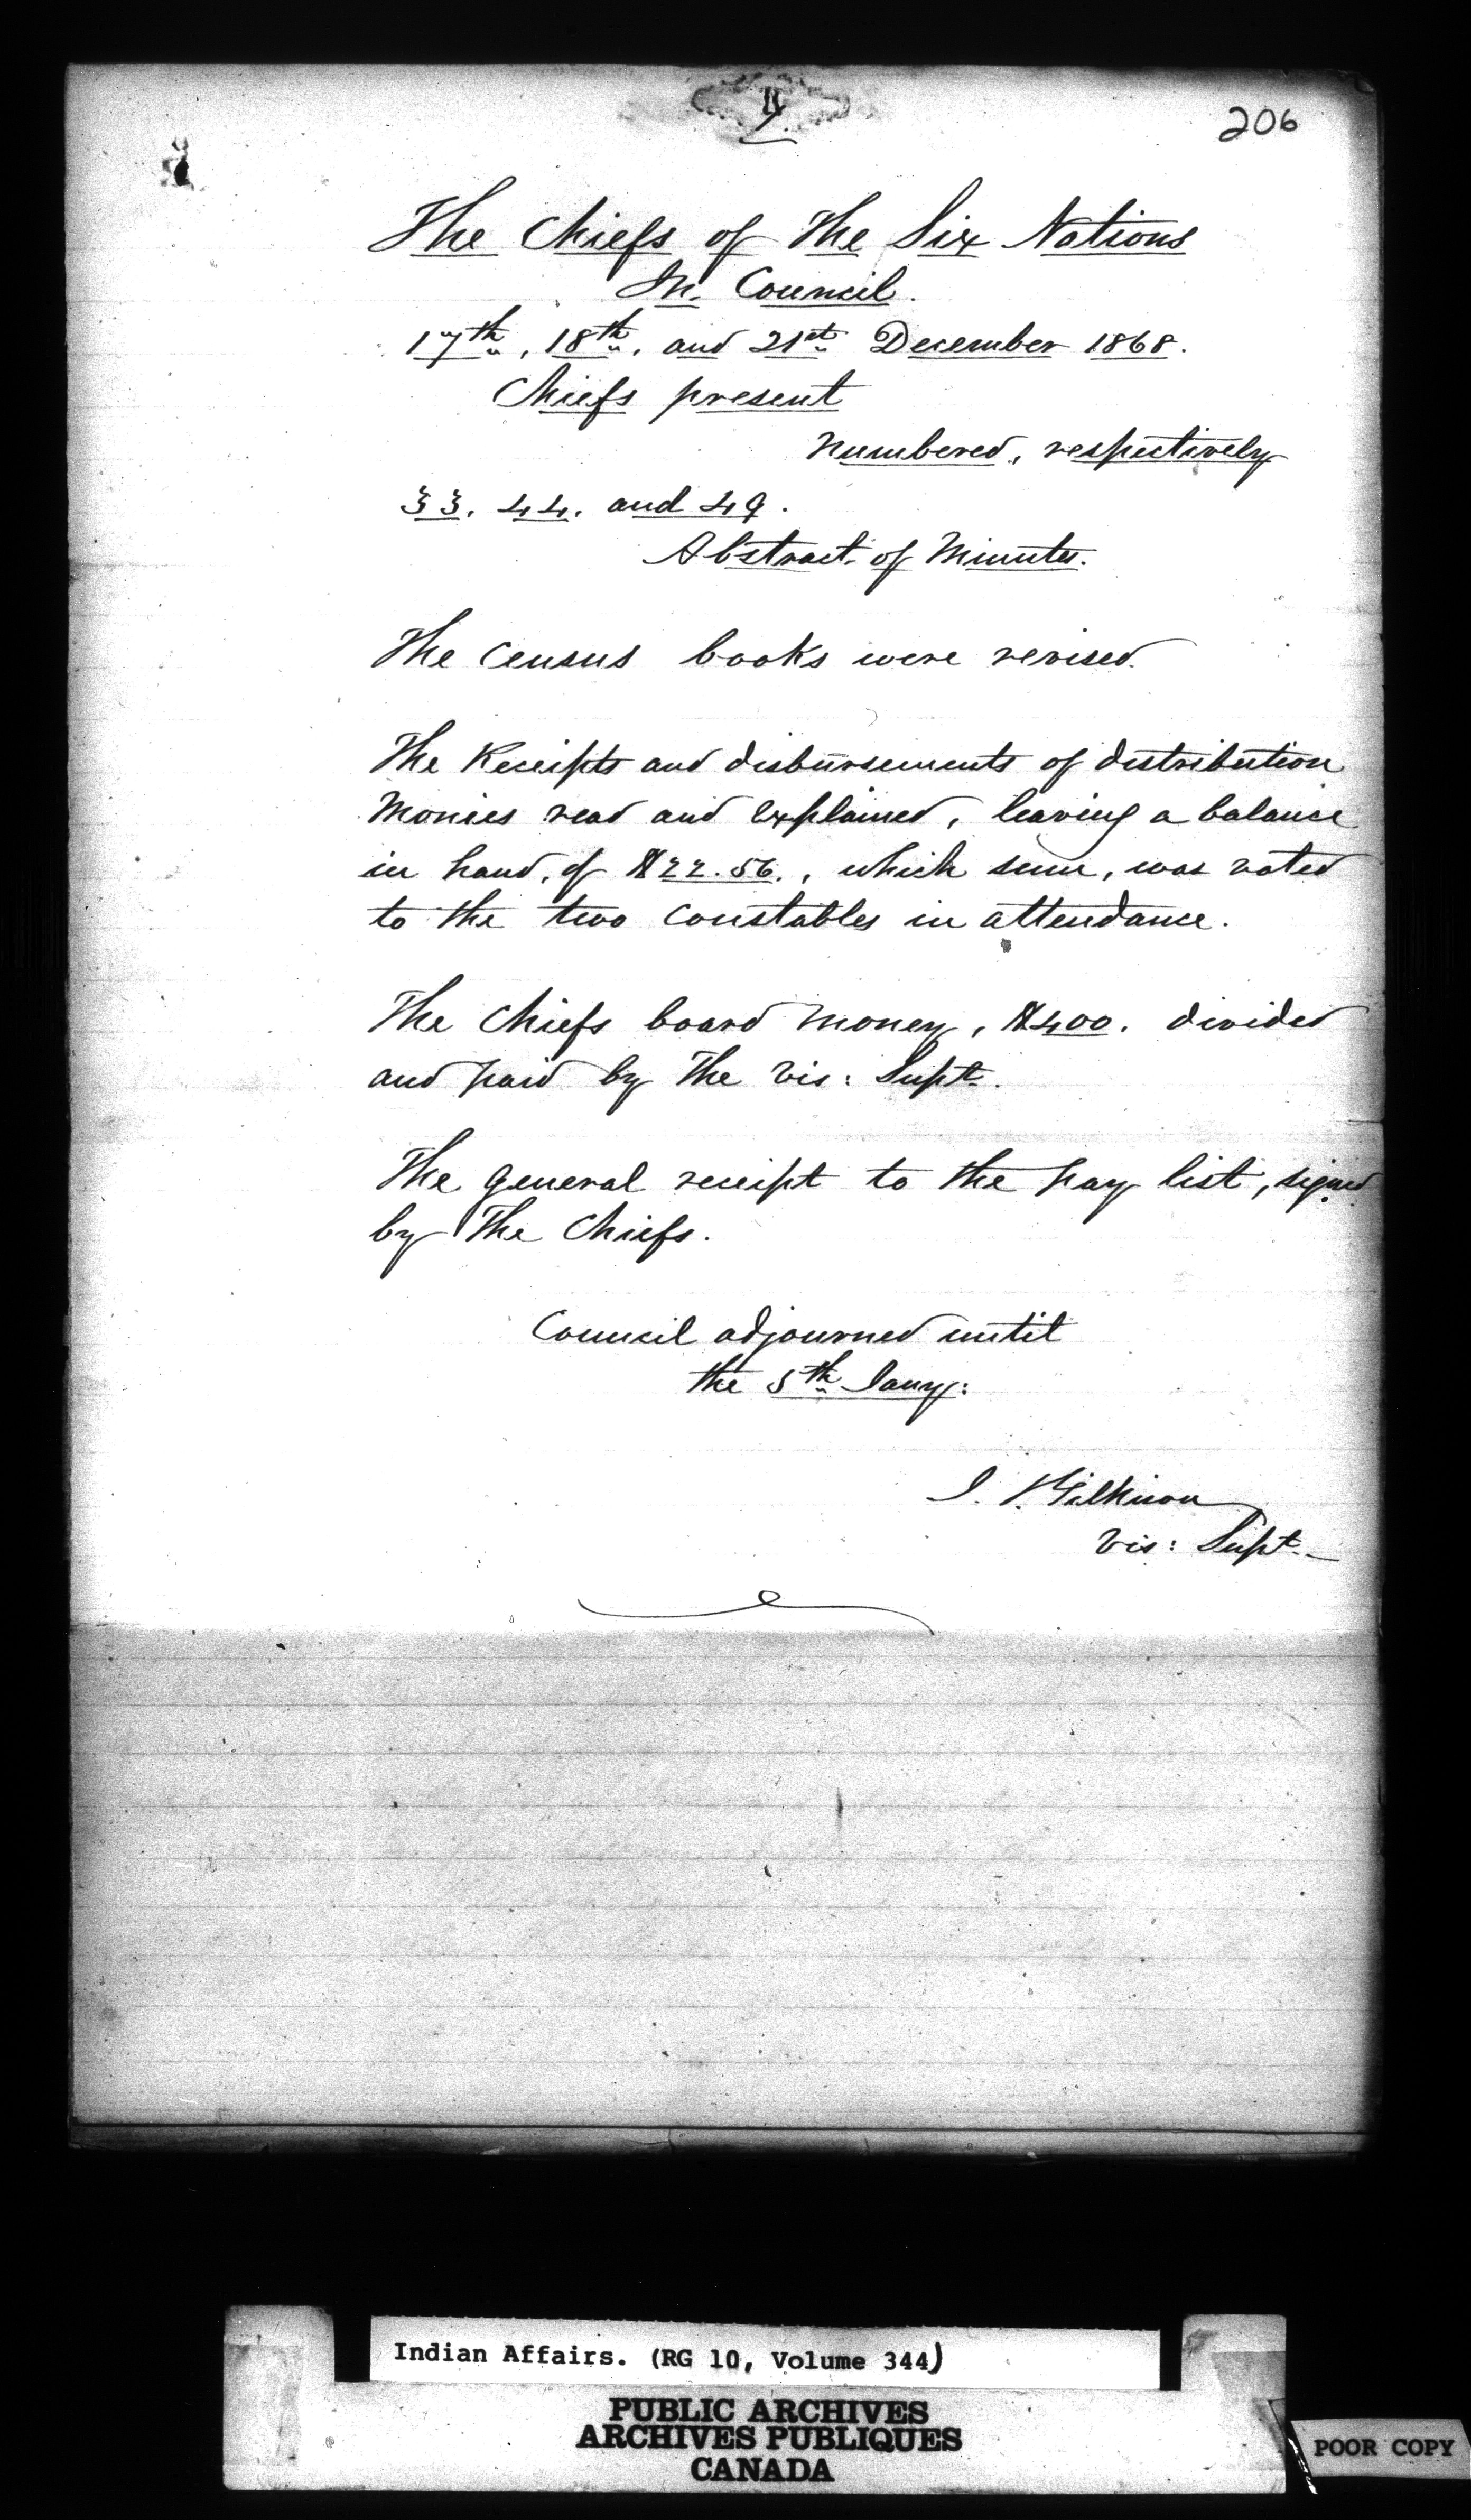 206
The Chiefs of The Six Nations
In Council.
17th, 18th, and 21st December 1868.
Chiefs present
numbered, respectively
33, 44, and 49.
Abstract of Minutes.
The Census books were revised.
The Receipts and disbursements of distribution
Monies read and explained, leaving a balance
in hand, of $22.56., which sum, was voted
to the two Constables in attendance.
The Chiefs board money, $400. divided
and paid by The Vis: Supt.
The general receipt to the pay list, signed
by The Chiefs.
Council adjourned until
the 5th Jany:
J. Gilkison
Vis: Supt.
Indian Affairs. (RG 10, Volume 344)
PUBLIC ARCHIVES
ARCHIVES PUBLIQUES
CANADA
POOR COPY